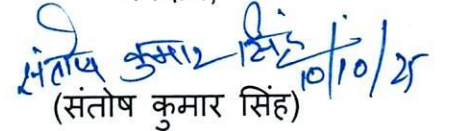 संतोष कुमार सिंह 10/10/25
(संतोष कुमार सिंह)